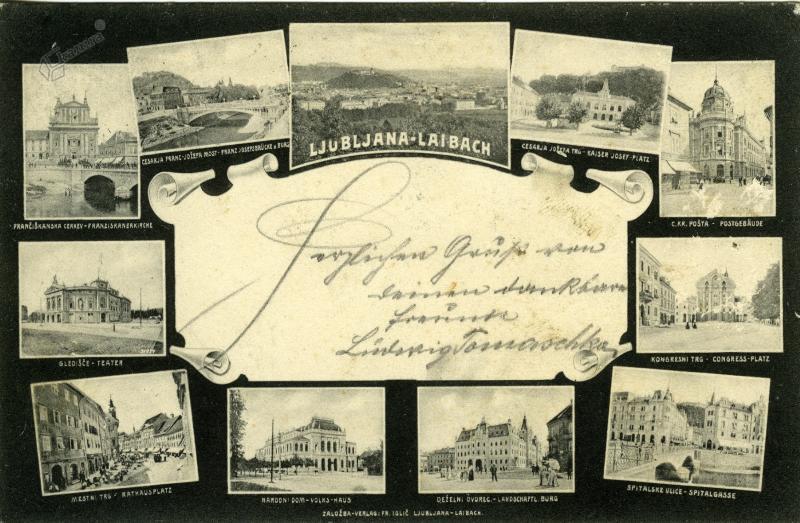 LJUBLJANA-LAIBACH
CESARJA FRANC-JOŽEFA MOST - FRANZ JOSEFSBRÜCKE u BURG
CESARJA JOŽEFA TRG - KAISER JOSEF-PLATZ
FRANČIŠKANSKA CERKEV - FRANZISKANERKIRCHE
C.KR. POŠTA - POSTGEBÄUDE
Herzlichen Gruß von
deinem dankbaren
Freunde
Ludwig Tomaschka
GLEDIŠČE - TEATER
KONGRESNI TRG - CONGRESS-PLATZ
MESTNI TRG - RATHAUSPLATZ
NARODNI DOM - VOLKS-HAUS
DEŽELNI DVOREC - LANDSCHAFTL. BURG
SPITALSKE ULICE - SPITALGASSE
ZALOŽBA-VERLAG: FR. IGLIČ LJUBLJANA-LAIBACH.